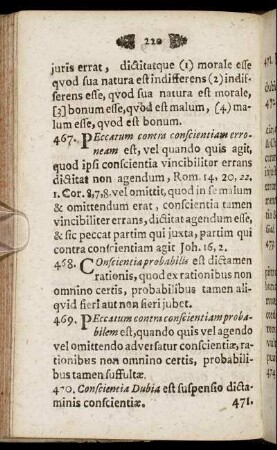 220
juris errat, dictitatque (1) morale esse
qvod sua natura est indifferens (2) indif-
ferens esse, qvod sua natura est morale,
[3] bonum esse, qvod est malum, (4) ma-
lum esse, qvod est bonum.
467. PEccatum contra conscientiam erro-
neam est, vel quando quis agit,
quod ipsi conscientia vincibiliter errans
dictitat non agendum, Rom. 14, 20, 22.
1. Cor. 8, 7, 8. vel omittit, quod in se malum
& omittendum erat, conscientia tamen
vincibiliter errans, dictitat agendum esse,
& sic peccat partim qui juxta, partim qui
contra conscientiam agit Joh. 16, 2.
468. COnscientia probabilis est dictamen
rationis, quod ex rationibus non
omnino certis, probabilibus tamen ali-
qvid fieri aut non fieri jubet.
469. PEccatum contra conscientiam proba-
bilem est, quando quis vel agendo
vel omittendo adversatur conscientiæ, ra-
tionibus non omnino certis, probabili-
bus tamen suffultæ.
470. Conscientia Dubia est suspensio dicta-
minis conscientiæ. 471.